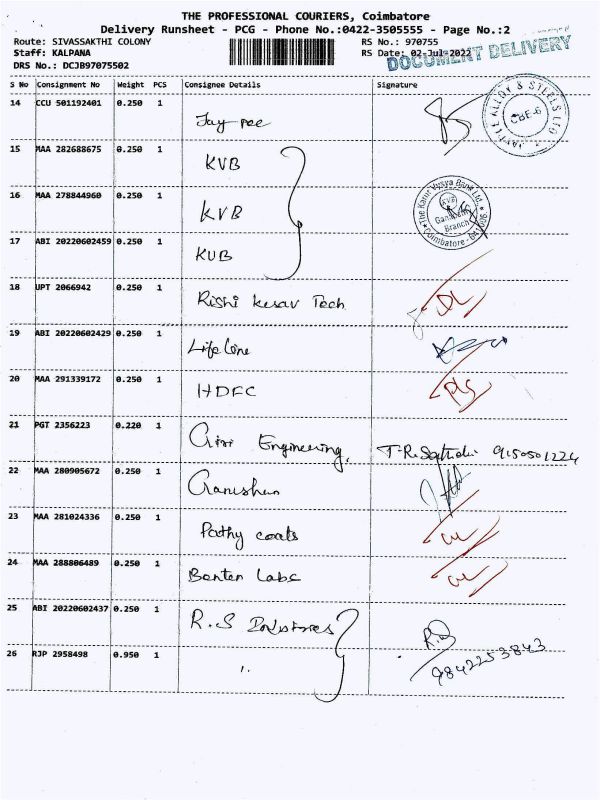 THE PROFESSIONAL COURIERS, Coimbatore
Delivery Runsheet - PCG - Phone No.:0422-3505555 - Page No.:2
Route: SIVASSAKTHI COLONY RS No.: 970755
Staff: KALPANA RS Date: 02-Jul-2022
DRS No.: DCJB97075502
DOCUMENT DELIVERY
S No Consignment No Weight PCS Consignee Details Signature
14 CCU 501192401 0.250 1 Jay pee
JAYPEE ALLOY & STEELS LTD
CBE-6
15 MAA 282688675 0.250 1 KVB
16 MAA 278844960 0.250 1 KVB
The Karur Vysya Bank Ltd.
KVB
Branch
Coimbatore
17 ABI 20220602459 0.250 1 KVB
18 UPT 2066942 0.250 1 Rishi Kesav Tech
19 ABI 20220602429 0.250 1 Life line
20 MAA 291339172 0.250 1 HDFC
21 PGT 2356223 0.220 1 Giri Engineering, 9150501224
22 MAA 280905672 0.250 1
23 MAA 281024336 0.250 1 Pathy coats
24 MAA 288806489 0.250 1 Benten Labs
25 ABI 20220602437 0.250 1 R.S Industries R.S
26 RJP 2958498 0.950 1 9842253843